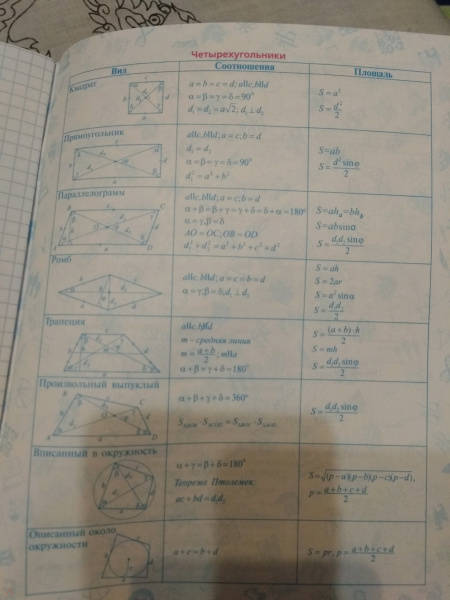 Четырехугольники
Вид Соотношения Площадь
Квадрат
a = b = c = d; a||c, b||d
α = β = γ = δ = 90°
d₁ = d₂ = a√2; d₁ ⊥ d₂
S = a²
S = d₁²/2
Прямоугольник
a||c, b||d; a = c; b = d
d₁ = d₂
α = β = γ = δ = 90°
d₁² = a² + b²
S = ab
S = d² sinφ/2
Параллелограмм
a||c, b||d; a = c; b = d
α + β = β + γ = γ + δ = δ + α = 180°
α = γ, β = δ
AO = OC; OB = OD
d₁² + d₂² = a² + b² + c² + d²
S = ahₐ = bh_b
S = ab sinα
S = d₁d₂ sinφ/2
Ромб
a||c, b||d; a = c = b = d
α = γ, β = δ, d₁ ⊥ d₂
S = ah
S = 2ar
S = a² sinα
S = d₁d₂/2
Трапеция
a||c, b∦d
m - средняя линия
m = a+b/2; m||a
α + β = γ + δ = 180°
S = (a+b)·h/2
S = mh
S = d₁d₂ sinφ/2
Произвольный выпуклый
α + β + γ + δ = 360°
S = d₁d₂ sinφ/2
Вписанный в окружность
α + γ = β + δ = 180°
Теорема Птолемея:
ac + bd = d₁d₂
S = √(p−a)(p−b)(p−c)(p−d),
p = a+b+c+d/2
Описанный около
окружности
a + c = b + d
S = pr, p = a+b+c+d/2